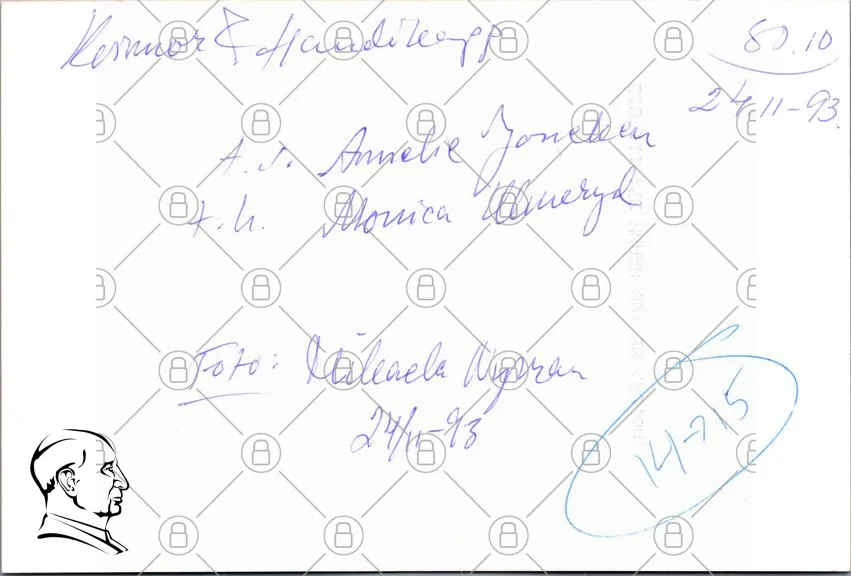 Kvinnor & Handikapp
80.10
24/11-93.
t.v. Annelie Joneken
t.h. Monica Ulmeryd
Foto: Mikaela Nyman
24/11-93
14→15